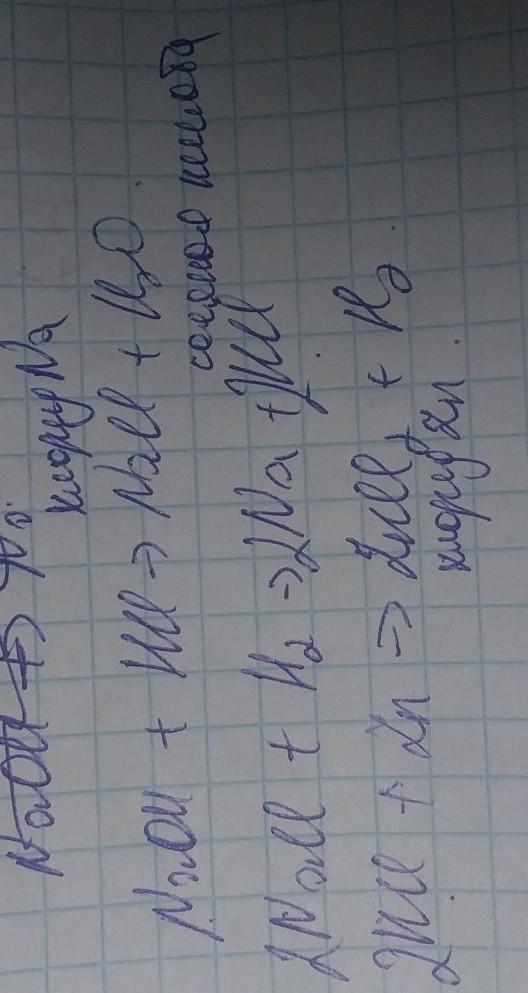 NaOH →
хлорид Na
NaOH + HCl → NaCl + H2O
соляная кислота
2NaCl + H2 → 2Na + 2HCl
2HCl + Zn → ZnCl2 + H2
хлорид Zn.